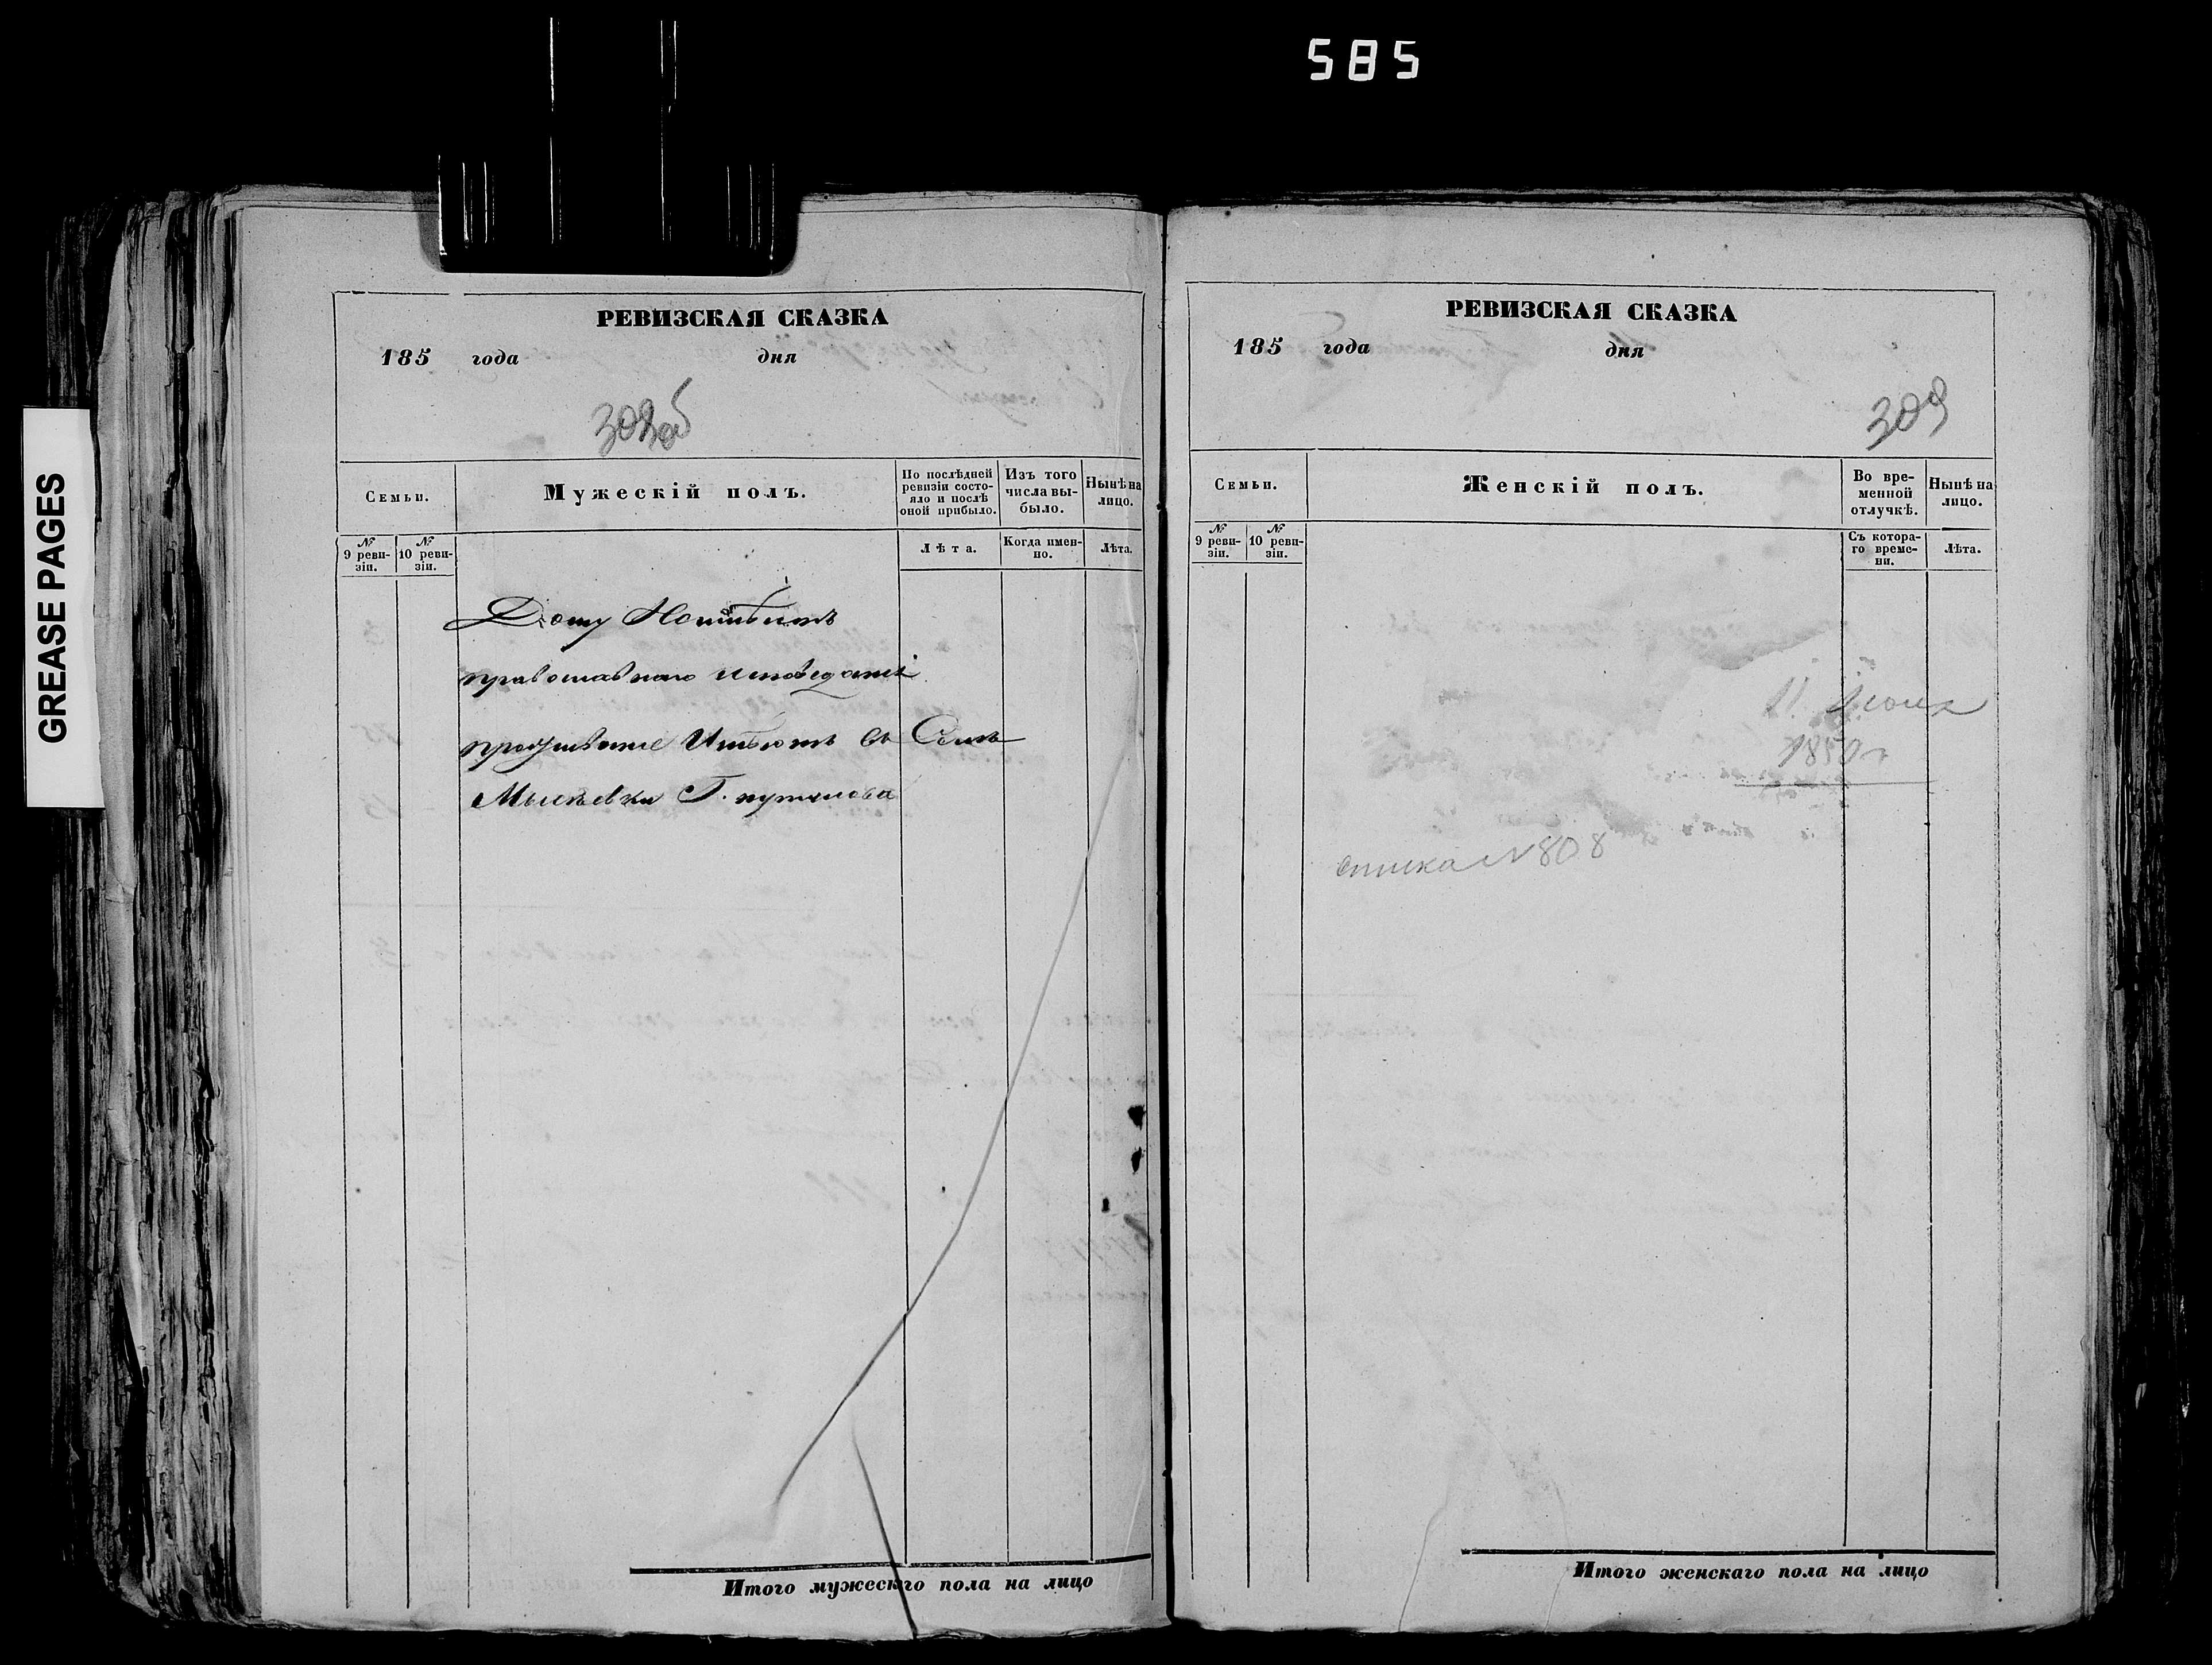 585
GREASE PAGES
РЕВИЗСКАЯ СКАЗКА
185 года дня
308об
Семьи.
Мужескій полъ.
По послѣдней ревизіи состояло и послѣ оной прибыло.
Изъ того числа выбыло.
Нынѣ на лицо.
№ 9 ревизіи.
№ 10 ревизіи.
Лѣта.
Когда именно.
Лѣта.
Дому
православнаго исповеданія
въ Селѣ
Г.
Итого мужескаго пола на лицо
РЕВИЗСКАЯ СКАЗКА
185 года дня
309
Семьи.
Женскій полъ.
Во временной отлучкѣ.
Нынѣ на лицо.
№ 9 ревизіи.
№ 10 ревизіи.
Съ котораго времени.
Лѣта.
1850 г
списка N 808
Итого женскаго пола на лицо